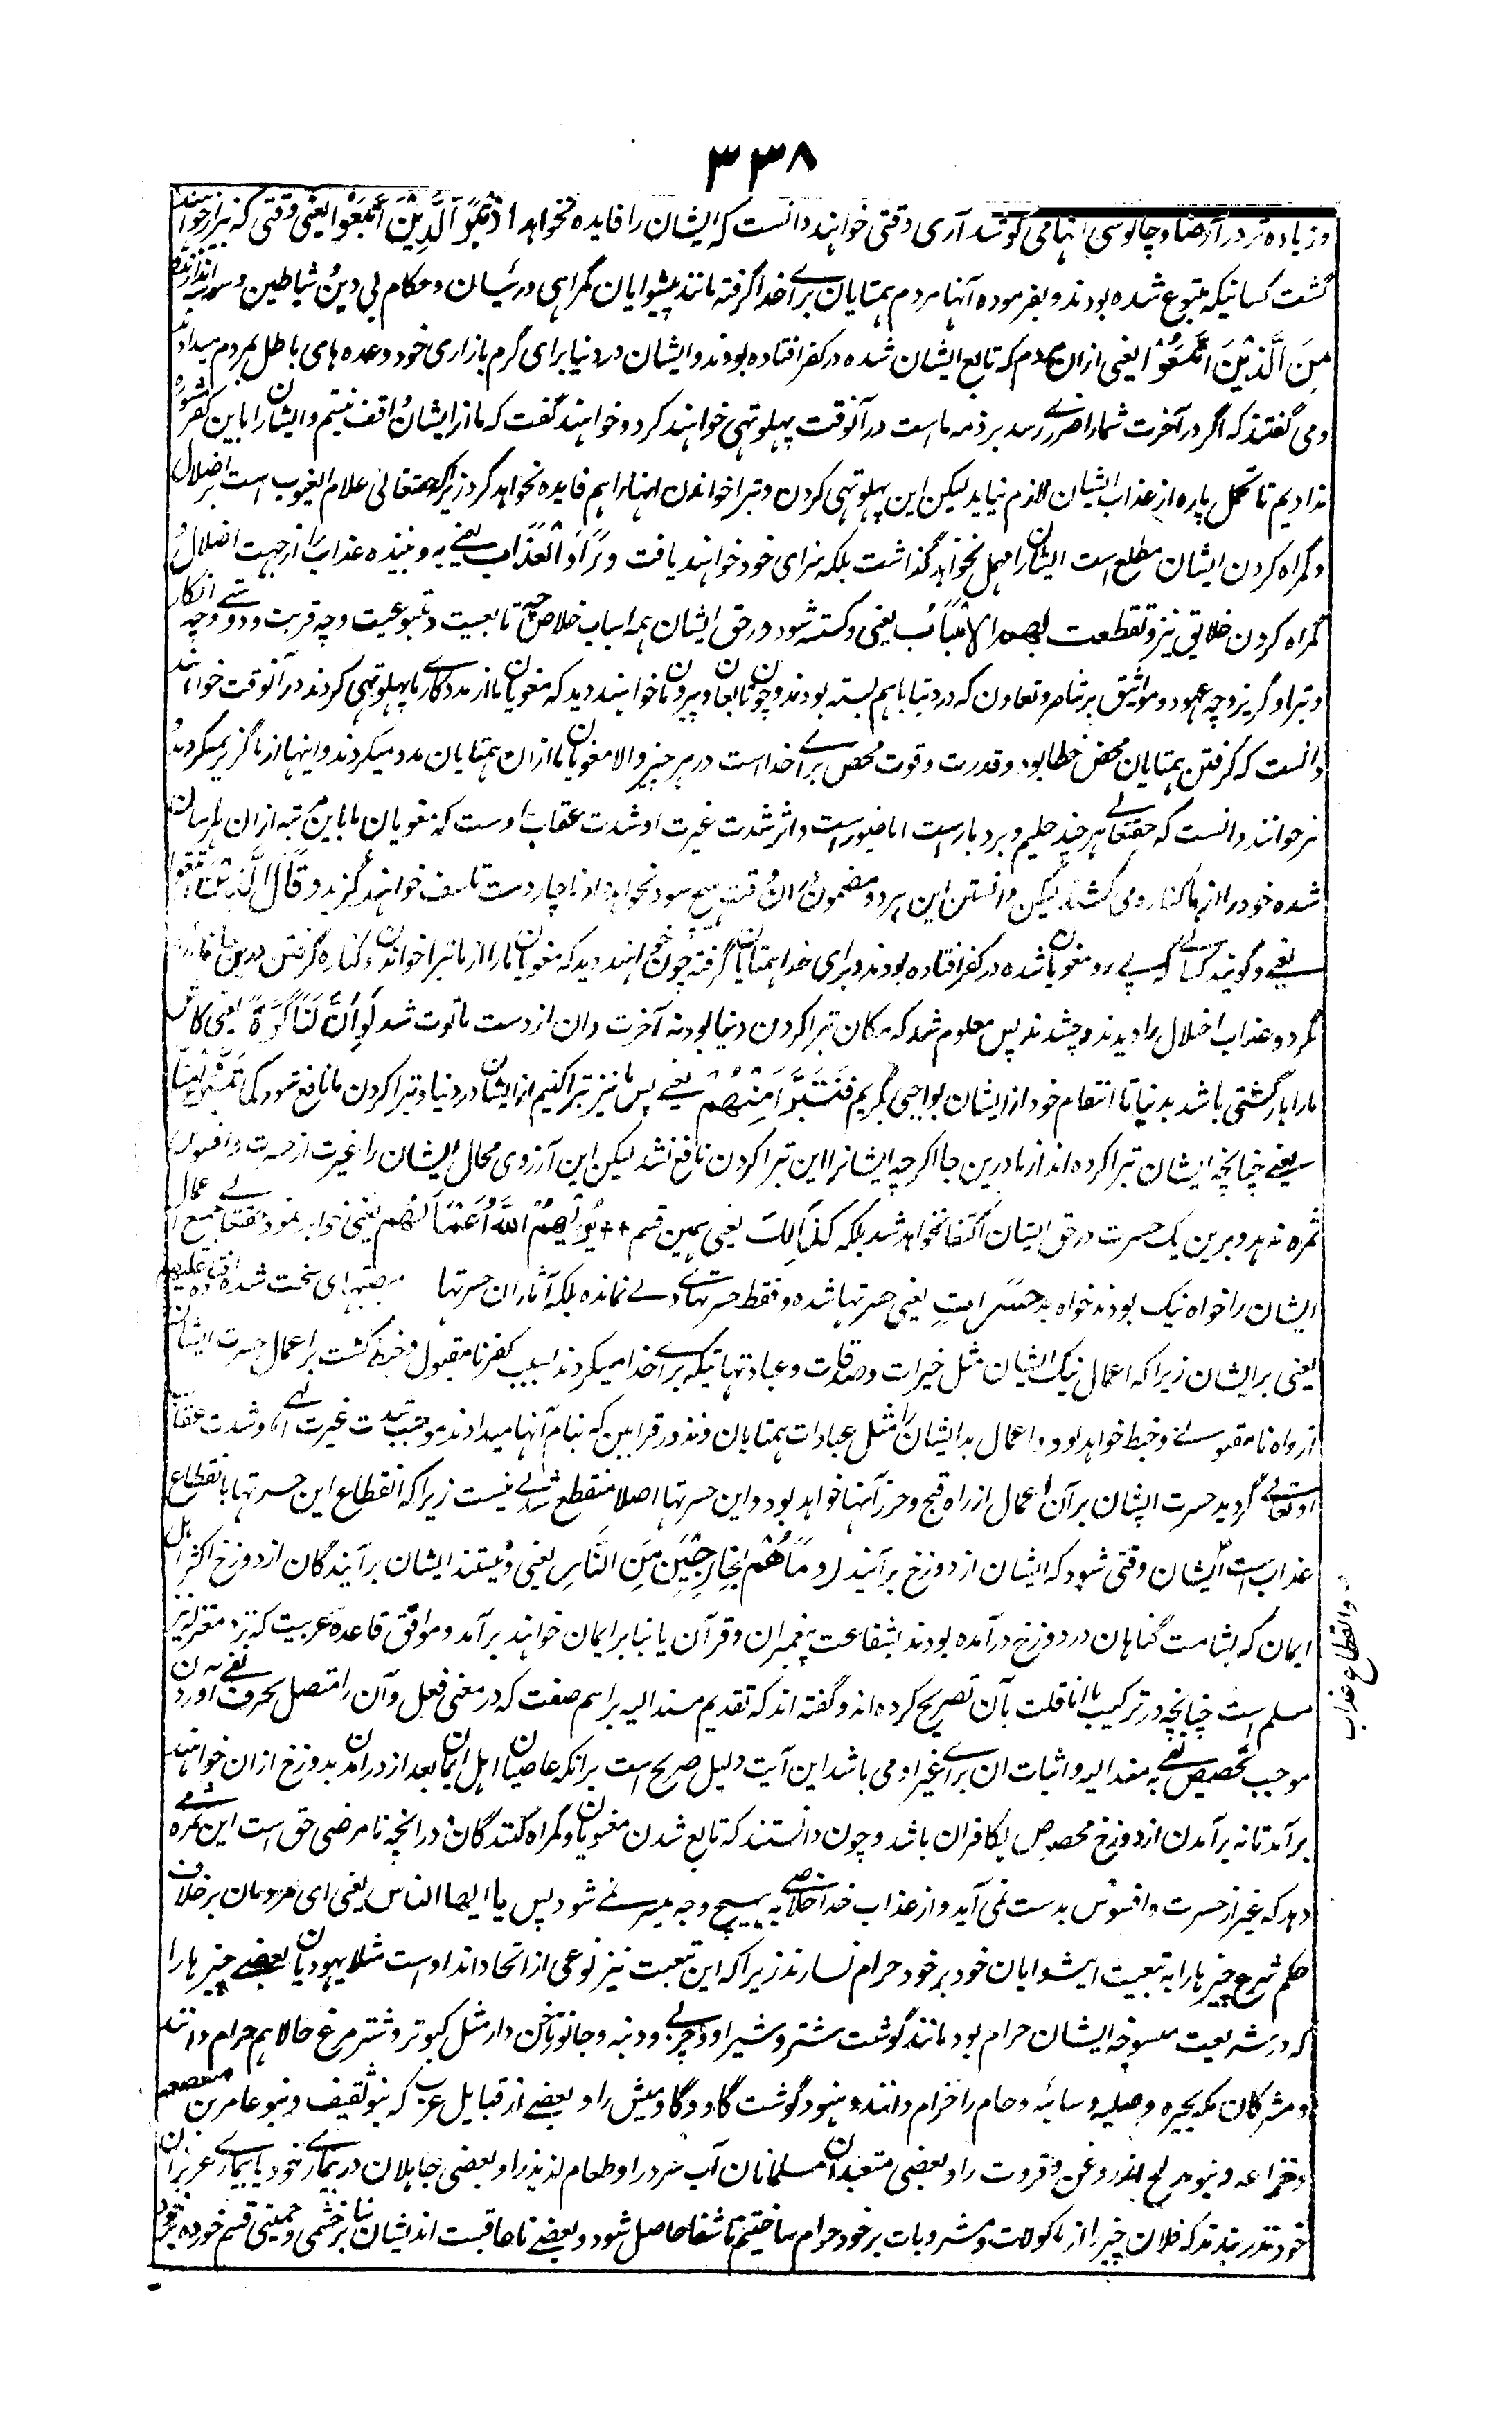 ۳۳۸
و زیاده تر در آن رضا و چاپلوسی انها می کوشد آری وقتی خواهند دانست که ایشان را فایده نخواهد اذ تبرأ الذین اتبعوا یعنی وقتی که بیزار خواهند
گشت کسانیکه متبوع شده بودند و بفرموده آنها مردم همتایان برای خدا گرفته مانند پیشوایان گمراهی و رئیسان و حکام بی دین و شیاطین وسوسه اندازنده
من الذین اتبعوا یعنی ازان مردم که تابع ایشان شده در کفر افتاده بودند و ایشان در دنیا برای گرم بازاری خود وعده های باطل بمردم میدادند
و می گفتند که اگر در آخرت شما را ضرری رسد بر ذمه ماست در آنوقت پهلوتهی خواهند کرد و خواهند گفت که ما از ایشان واقف نیستیم و ایشان را باین کفر مشوره
ندادیم تا تحمل پاره از عذاب ایشان لازم نیاید لیکن این پهلوتهی کردن و تبرا خواندن انها را هم فایده نخواهد کرد زیراکه حقتعالی علام الغیوب است بر اضلال
و گمراه کردن ایشان مطلع است ایشان را مهمل نخواهد گذاشت بلکه سزای خود خواهند یافت و رأوا العذاب یعنی به بینند عذاب را از جهت اضلال و
گمراه کردن خلایق نیز و تقطعت بهم الاسباب یعنی و گسسته شود در حق ایشان همه اسباب خلاص چه تابعیت و متبوعیت و چه قربت و دوستی و چه انکار
و تبرا و گریز و چه عهود و مواثیق بر تناصر و تعاون که در دنیا باهم بسته بودند و چون تابعان و پیروان خواهند دید که مغویان ما از مددکاری ما پهلوتهی کردند در آنوقت خواهند
دانست که گرفتن همتایان محض خطا بود و قدرت و قوت محض برای خداست در هر چیز والا مغویان ما ازان همتایان مدد میکردند و اینها از ما گریز نمیکردند و
نیز خوانند دانست که حقتعالی هر چند حلیم و بردبار است اما غیور است و اثر شدت غیرت او شدت عقاب اوست که مغویان ما باین مرتبه ازان هراسان
شده خود را از ما کناره می کشند لیکن دانستن این هر دو مضمون دران وقت هیچ سود نخواهد داد ناچار دست تاسف خواهند گزید و قال الذین اتبعوا
یعنی و گویند کسانی که پیرو مغویان شده در کفر افتاده بودند و برای خدا همتایان گرفته چون خواهند دید که مغویان ما را از ما تبرا خواندن و کناره گرفتن درین جا فایده
نکرد و عذاب اضلال را دیدند و چشیدند پس معلوم شد که مکان تبرا کردن دنیا بود نه آخرت و ان از دست ما فوت شد لو أن لنا کرة یعنی کاش
ما را بازگشتی باشد بدنیا تا انتقام خود از ایشان بواجبی بگیریم فنتبرأ منهم یعنی پس ما نیز تبرا کنیم از ایشان در دنیا و تبرا کردن ما نافع شود کما تبرءوا منا
یعنی چنانچه ایشان تبرا کرده اند از ما درین جا اگرچه ایشانرا این تبرا کردن نافع نشد لیکن این آرزوی محال ایشان را غیر از حسرت و افسوس
ثمره ندهد و برین یک حسرت در حق ایشان اکتفا نخواهد شد بلکه کذالک یعنی همین قسم یریهم الله أعمالهم یعنی خواهد نمود حقتعالی جمیع اعمال
ایشان را خواه نیک بودند خواه بد حسرات یعنی حسرتها شده و فقط حسرتهای دلی نمانده بلکه آثار ان حسرتها مصیبتهای سخت شده افتاده علیهم
یعنی بر ایشان زیرا که اعمال نیک ایشان مثل خیرات و صدقات و عبادتهائیکه برای خدا میکردند بسبب کفر نامقبول و حبط گشت بر اعمال حسرت ایشان
از راه نامقبولی و حبط خواهد بود و اعمال بد ایشان را مثل عبادات همتایان و نذور و قرابین که بنام آنها میدادند موجب شدت غیرت الهی و شدت عقاب
او تعالی گردید حسرت ایشان بر آن اعمال از راه قبح و حزز آنها خواهد بود و این حسرتها اصلا منقطع شدنی نیست زیرا که انقطاع این حسرتها بانقطاع
عذاب است و انقطاع عذاب ایشان وقتی شود که ایشان از دوزخ برآیند و ما هم بخارجین من النار یعنی و نیستند ایشان برآیندگان از دوزخ اکثر اهل
ایمان که بشامت گناهان در دوزخ درآمده بودند بشفاعت پیغمبران و قرآن یا بنا بر ایمان خواهند برآمد و موافق قاعده عربیت که نزد معتزله نیز
مسلم است چنانچه در ترکیب ما انا قلت بآن تصریح کرده اند و گفته اند که تقدیم مسند الیه بر اسم صفت که در معنی فعل و آن را متصل بحرف نفی آوردن
موجب تخصیص نفی به مسند الیه و اثبات ان برای غیر او می باشد این آیت دلیل صریح است برانکه عاصیان اهل ایمان بعد از درامدن بدوزخ ازان خواهند
برآمد تا نه برآمدن از دوزخ مخصوص بکافران باشد و چون دانستند که تابع شدن مغویان و گمراه کنندگان در انچه نامرضی حق است این ثمره
دهد که غیر از حسرت و افسوس بدست نمی آید و از عذاب خدا خلاصی به هیچ وجه میسر نمی شود پس یا ایها الناس یعنی ای مردمان بر خلاف
حکم شرع چیزها را به تبعیت پیشوایان خود بر خود حرام نسازند زیرا که این تبعیت نیز نوعی از اتخاذ انداد است مثلا یهودیان بعضی چیزها را
که در شریعت منسوخه ایشان حرام بود مانند گوشت شتر و شیر او و چربی و دنبه و جانور ناخن دار مثل کبوتر و شتر مرغ حالا هم حرام دانند
و مشرکان مکه بحیره و وصیله و سائبه و حام را حرام دانند و هنود گوشت گاو و گاو میش را و بعضی از قبایل عرب که بنو ثقیف و بنو عامر بن صعصعه
و خزاعه و بنو مدلج اند روغن و قروت را و بعضی متعبدان مسلمانان آب سرد را و طعام لذیذ را و بعضی جاهلان در بیماری خود یا بیماری عزیزان
خود نذر بندند که فلان چیز را از ماکولات و مشروبات بر خود حرام ساختیم تا شفا حاصل شود و بعضی ناعاقبت اندیشان بنا بر خشمی و حمیتی قسم خورده
و انقطاع عذاب